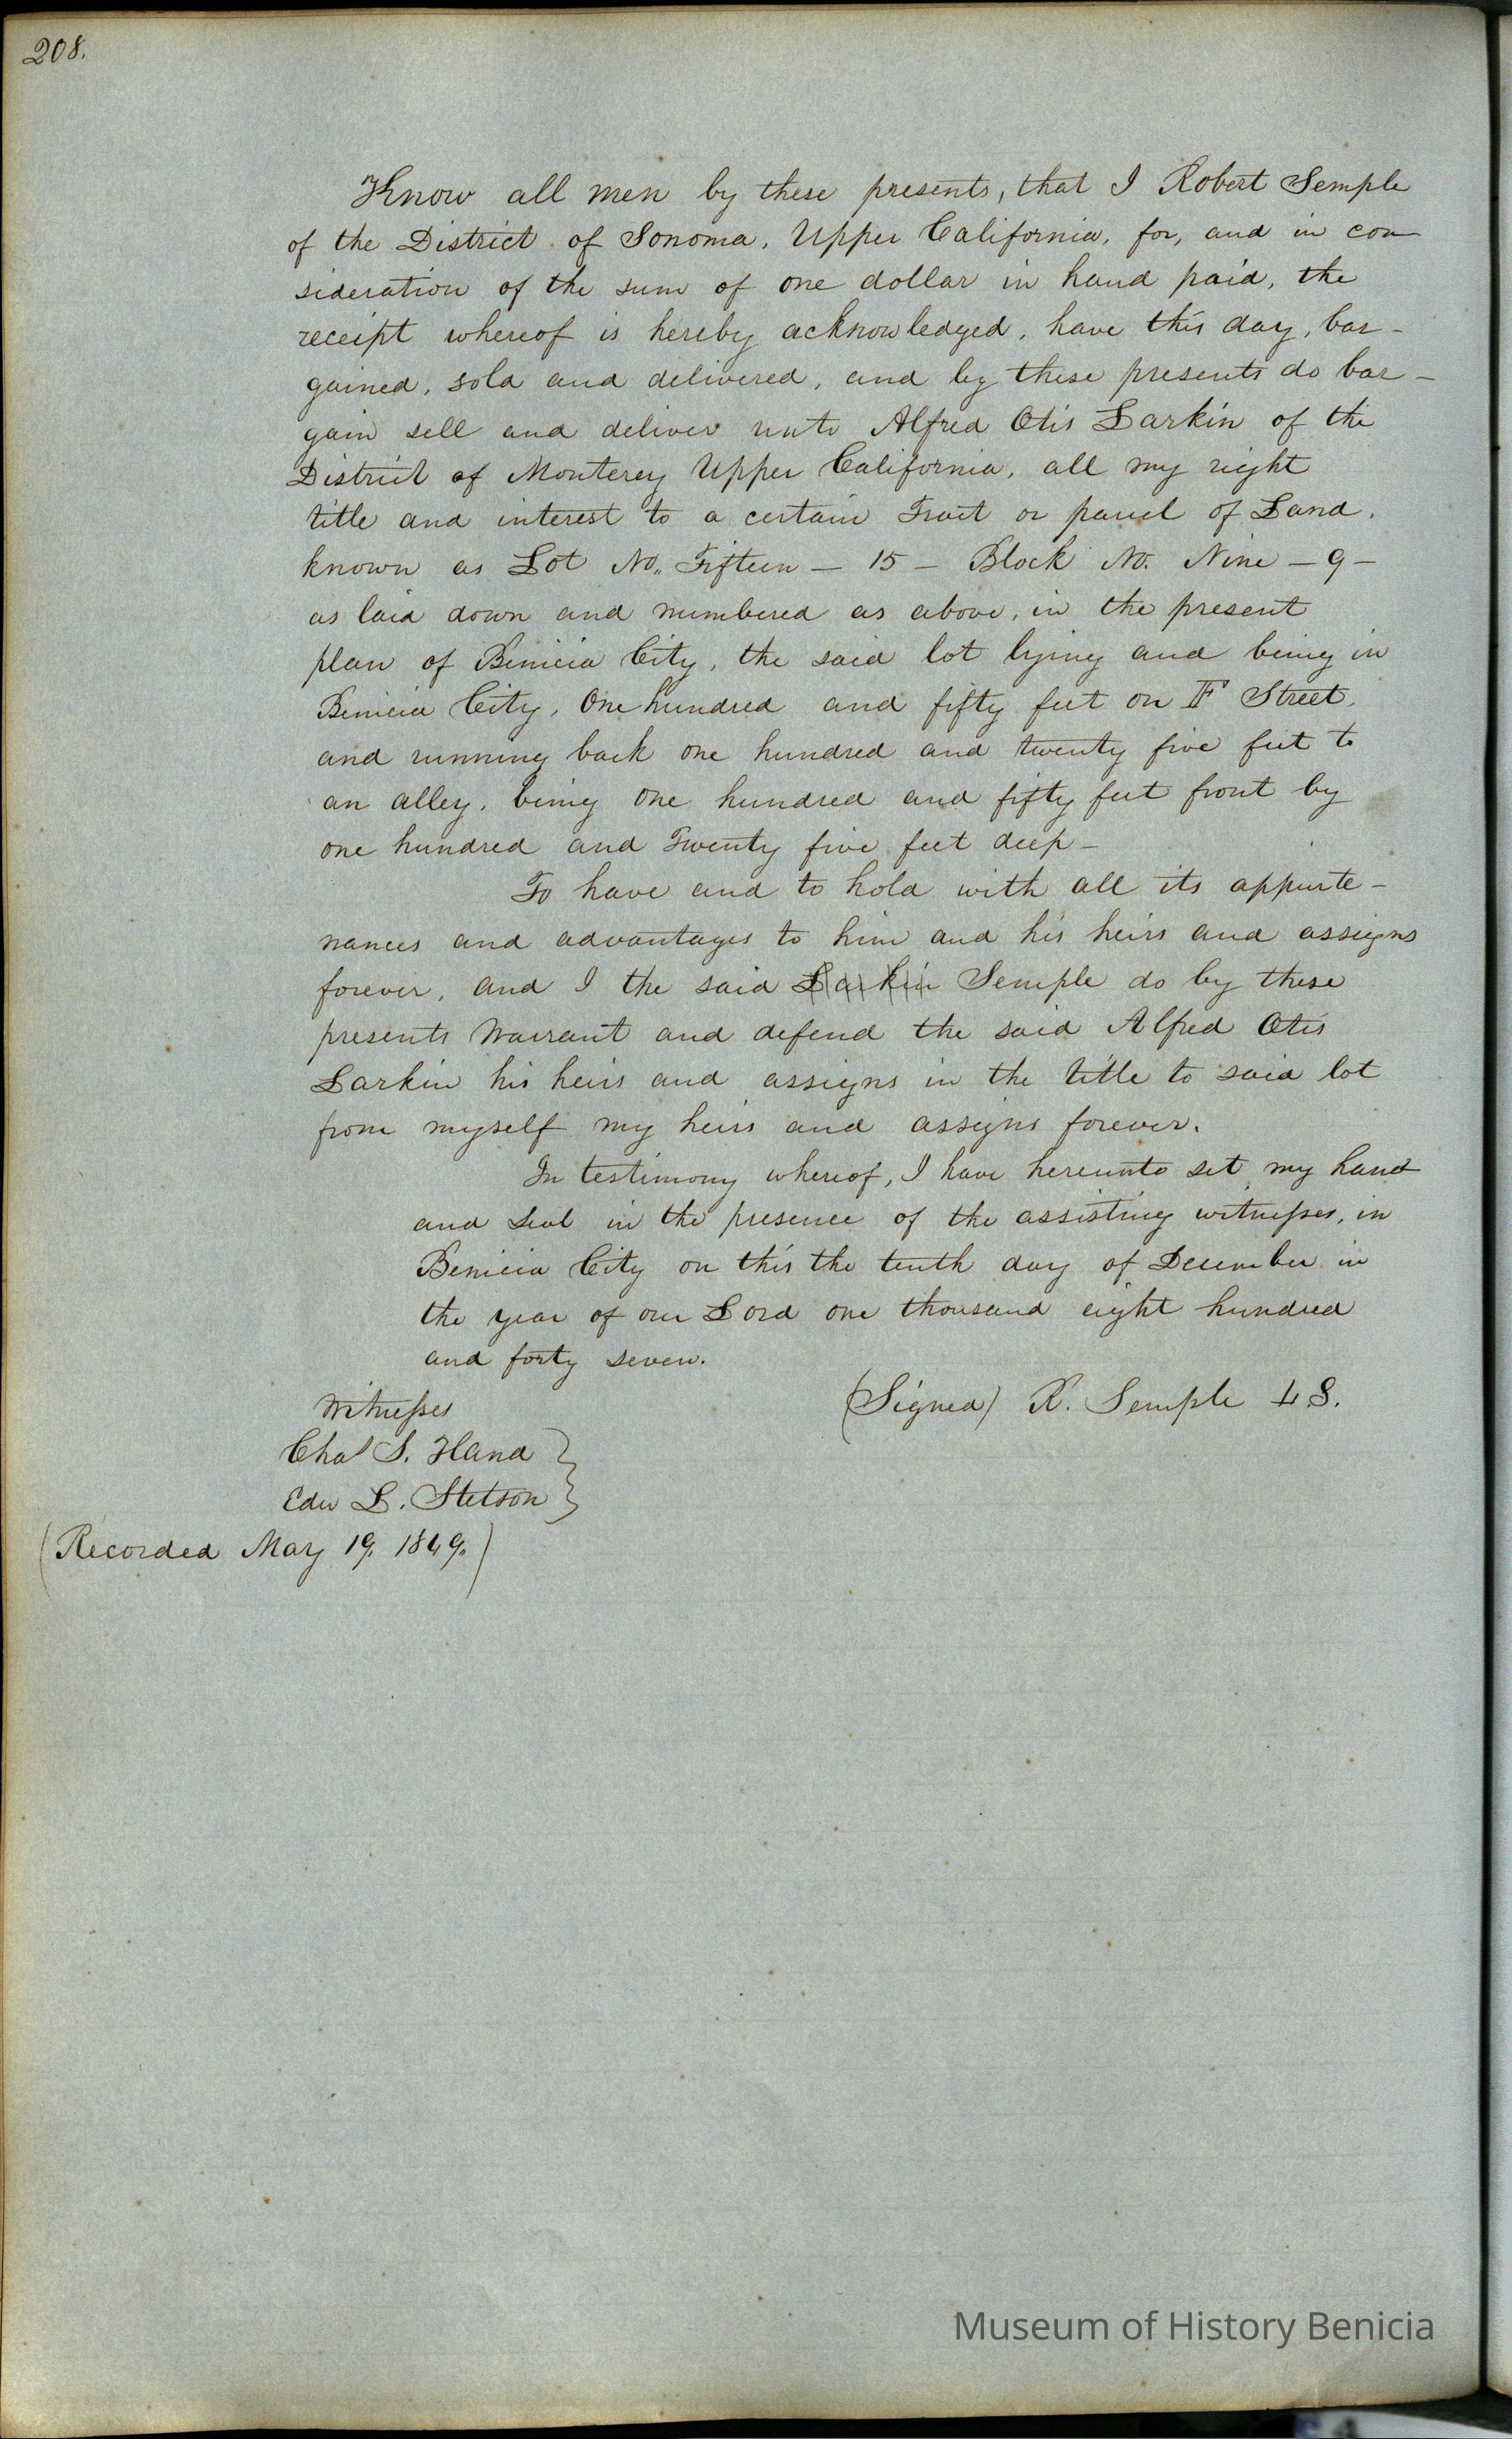 208.
Know all men by these presents, that I Robert Semple
of the District of Sonoma, Upper California, for, and in con
sideration of the sum of one dollar in hand paid, the
receipt whereof is hereby acknowledged, have this day, bar-
gained, sold and delivered, and by these presents do bar-
gain sell and deliver unto Alfred Otis Larkin of the
District of Monterey Upper California, all my right
title and interest to a certain Tract or parcel of Land,
known as Lot No. Fifteen - 15 - Block No. Nine - 9 -
as laid down and numbered as above, in the present
plan of Benicia City, the said lot lying and being in
Benicia City, One hundred and fifty feet on F Street,
and running back one hundred and twenty five feet to
an alley, being one hundred and fifty feet front by
one hundred and Twenty five feet deep -
To have and to hold with all its appurte-
nances and advantages to him and his heirs and assigns
forever, and I the said Larkin Semple do by these
presents Warrant and defend the said Alfred Otis
Larkin his heirs and assigns in the title to said lot
from myself my heirs and assigns forever.
In testimony whereof, I have hereunto set my hand
and seal in the presence of the assisting witnesses, in
Benicia City on this the tenth day of December in
the year of our Lord one thousand eight hundred
and forty seven.
(Signed) R. Semple L S.
Witnesses
Chas S. Hand
Edw L. Stetson
(Recorded May 19, 1849.)
Museum of History Benicia